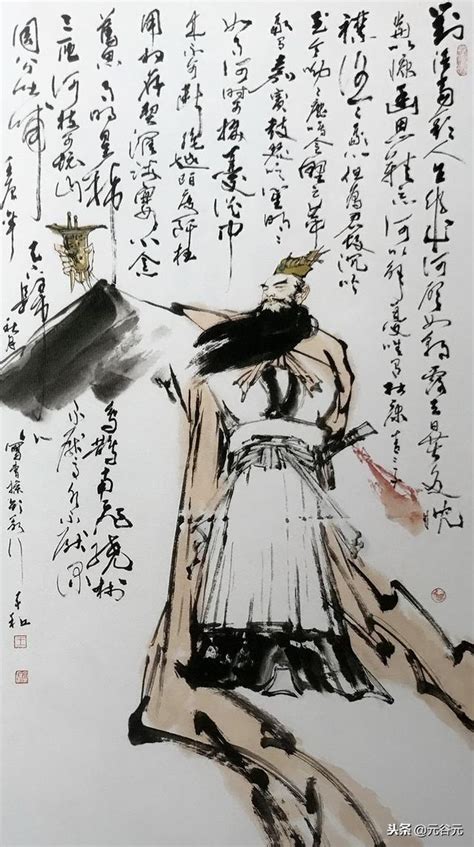 對酒當歌人生幾何譬如朝露去日苦多慨
當以慷憂思難忘何以解憂唯有杜康青青子
衿悠悠我心但為君故沉吟
至今呦呦鹿鳴食野之苹
我有嘉賓鼓瑟吹笙明明
如月何時可掇憂從中
來不可斷絕越陌度阡枉
用相存契闊談讌心念
舊恩月明星稀
烏鵲南飛繞樹
三匝何枝可依山
不厭高水不厭深
周公吐哺
天下歸
秋月
寫曹操短歌行
头条 @元谷元